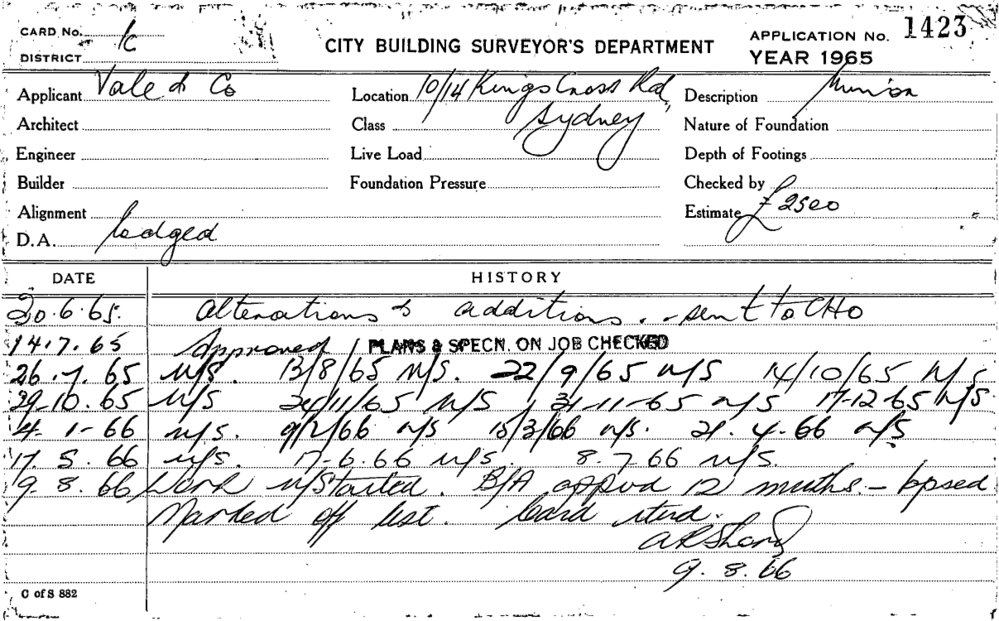 CARD No.
1423
K
CITY BUILDING SURVEYOR'S DEPARTMENT
APPLICATION No.
DISTRICT
YEAR 1965
Applicant Vale & Co
Location 10/14 Kings Cross Rd,
Description
Architect
Class Sydney
Nature of Foundation
Engineer
Live Load
Depth of Footings
Builder
Foundation Pressure
Checked by
Alignment
Estimate £2500
D.A. lodged
DATE HISTORY
30.6.65. Alterations & additions. - sent to CHO
14.7.65 Approved PLANS & SPECN. ON JOB CHECKED
26.7.65 N/S. 13/8/65 N/S. 22/9/65 N/S 14/10/65 N/S
29-10.65 N/S 24/11/65 N/S N/S 17-12-65 N/S.
4-1-66 N/S. 9/2/66 N/S 15/3/66 N/S. 21.4.66 N/S
17.5.66 N/S. 17-6.66 N/S. 8.7.66 N/S.
9.8.66 Work N/Started. B/A 12 mnths. - lapsed
Marked off list. Card
9.8.66
C of S 882